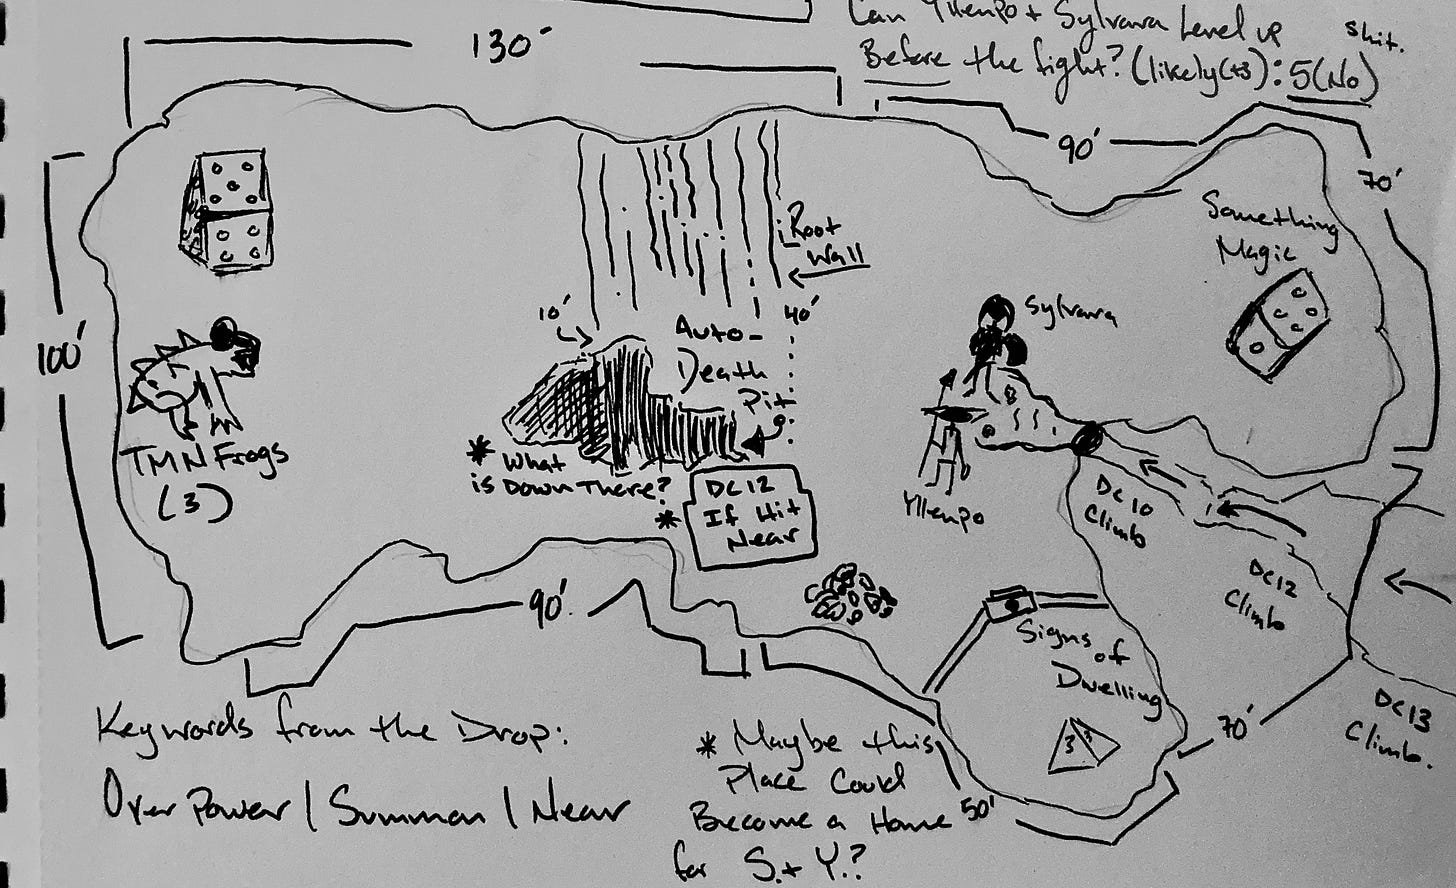 Can Yllenpo + Sylvara Level up
Before the fight? (likely(+3): 5(No)
shit.
130'
90'
70'
100'
Root
Wall
Something
Magic
10'
40'
Auto-
Death
Pit
Sylvara
Yllenpo
TMN Frogs
(3)
* What
is Down There?
* DC 12
If Hit
Near
DC 10
Climb
DC 12
Climb
DC 13
Climb.
90'.
Signs
of
Dwelling
3
3
70'
50'
Keywords from the Drop:
Over Power / Summon / Near
* Maybe this
Place Could
Become a Home
for S. + Y.?